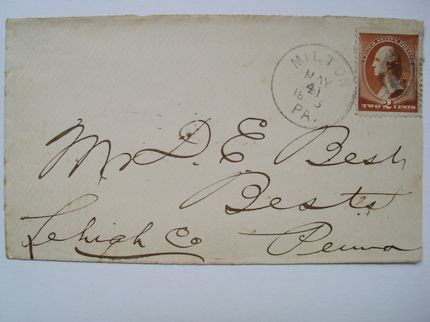 MILTON
MAY
PA.
UNITED STATES POSTAGE
TWO CENTS
Mr D. E Best
Bests
Lehigh Co Penna